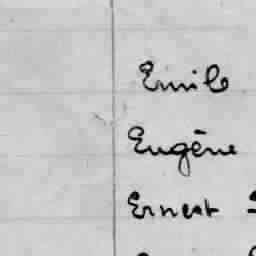 Emile
Eugène
Ernest